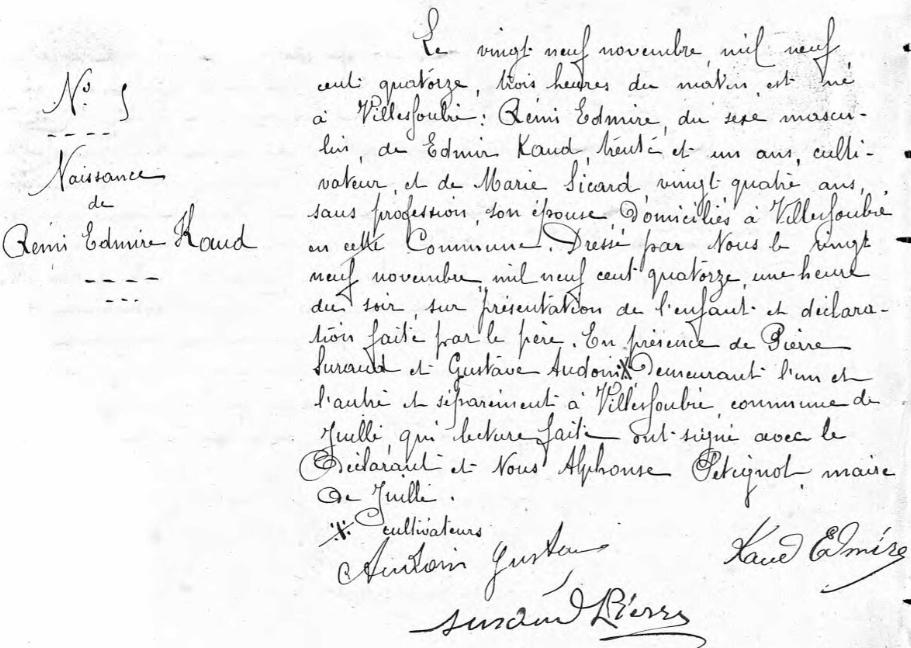 N° 5
Naissance
de
Rémi Edmire Kaud
Le vingt neuf novembre mil neuf
cent quatorze, trois heures du matin est né
à Villesoubie : Rémi Edmire, du sexe mascu-
lin, de Edmir Kaud, trente et un ans, culti-
vateur, et de Marie Sicard vingt quatre ans,
sans profession, son épouse, Domiciliés à Villesoubie
en cette Commune. Dressé par Nous le vingt
neuf novembre mil neuf cent quatorze, une heure
du soir, sur présentation de l'enfant et déclara-
tion faite par le père. En présence de Pierre
Suraud et Gustave Audoin X Demeurant l'un et
l'autre et séparément à Villesoubie, commune de
Juillé, qui lecture faite ont signé avec le
Déclarant et Nous Alphonse Petignot, maire
De Juillé.
X cultivateurs
Audoin Gustave
Kaud Edmire
Suraud Pierre